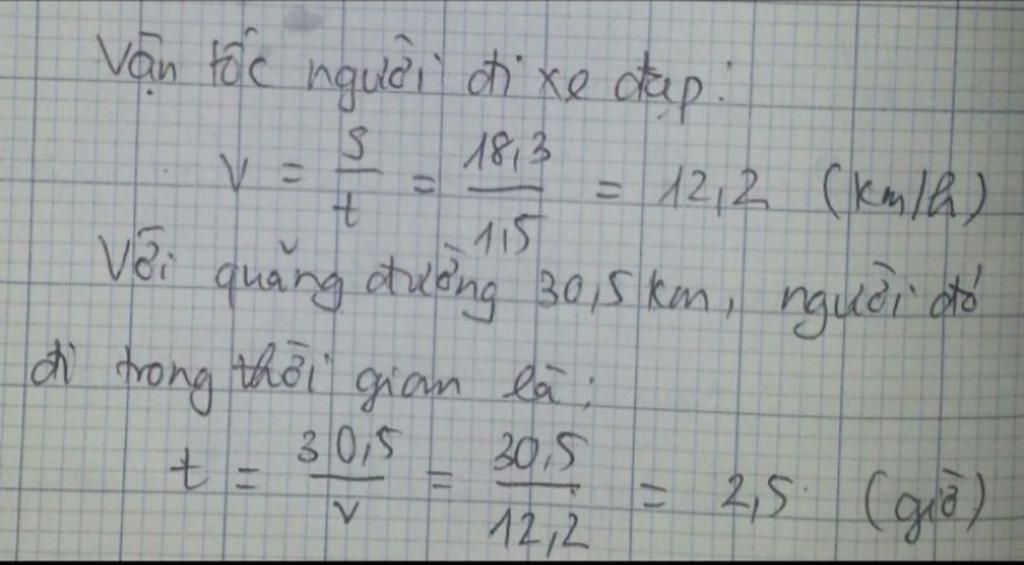 Vận tốc người đi xe đạp:
v = s/t = 18,3/1,5 = 12,2 (km/h)
Với quãng đường 30,5 km, người đó
đi trong thời gian là:
t = 30,5/v = 30,5/12,2 = 2,5 (giờ)